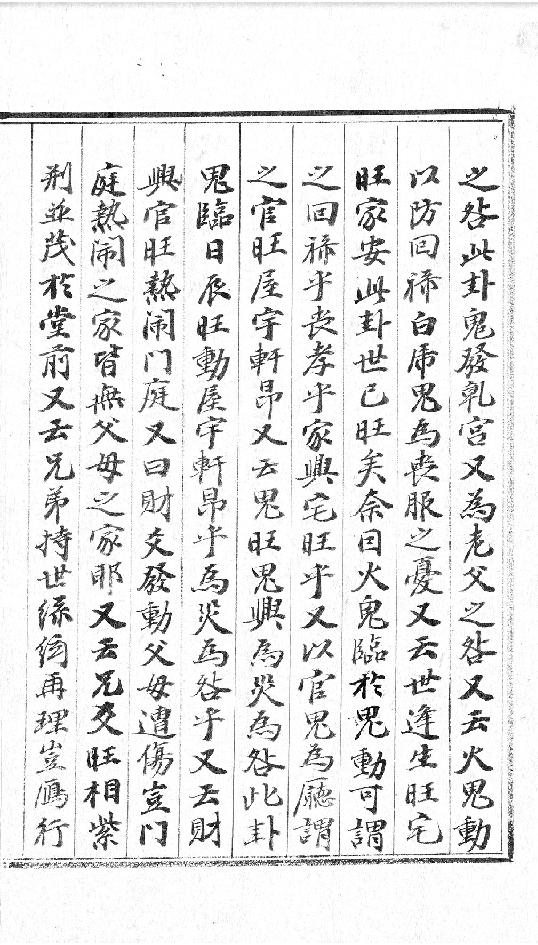 之咎此卦鬼發乹宮又為老父之咎又云火鬼動
以防回祿白虎鬼為喪服之憂又云世逢生旺宅
旺家安此卦世已旺矣奈因火鬼臨於鬼動可謂
之回祿乎喪孝乎家興宅旺乎又以官鬼為廳謂
之官旺屋宇軒昂又云鬼旺鬼興為災為咎此卦
鬼臨日辰旺動屋宇軒昂乎為災為咎乎又云財
興官旺熱闹门庭又曰財爻發動父母遭傷豈门
庭熱闹之家皆無父母之家耶又云兄爻旺相紫
荆並茂於堂前又云兄弟持世絲絃再理豈鴈行